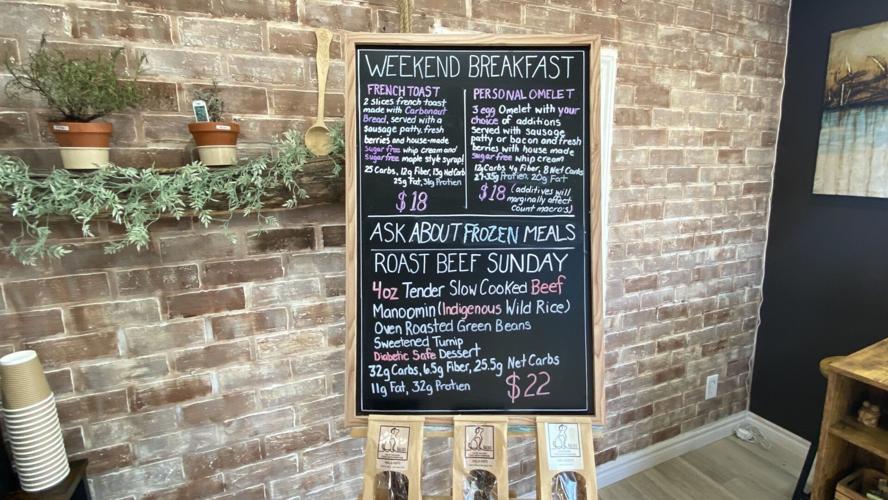 WEEKEND BREAKFAST
FRENCH TOAST
2 slices french toast
made with Carbonaut
Bread, served with a
sausage patty, fresh
berries and house-made
sugar free whip cream and
sugarfree maple style syrup!
25 Carbs, 12g Fiber, 13g Net Carb
25g Fat, 31g Protien
$18
PERSONAL OMELET
3 egg Omelet with your
choice of additions
served with sausage
patty or bacon and fresh
berries with house made
sugar free whip cream
12g Carbs, 4g Fiber, 8 Net Carbs
27-35g Protien, 20g Fat
$18 (additives will
marginally affect
count macro's)
ASK ABOUT FROZEN MEALS
ROAST BEEF SUNDAY
4oz Tender Slow Cooked Beef
Manoomin (Indigenous Wild Rice)
Oven Roasted Green Beans
Sweetened Turnip
Diabetic Safe Dessert
32g Carbs, 6.5g Fiber, 25.5g Net Carbs
11g Fat, 32g Protien
$22